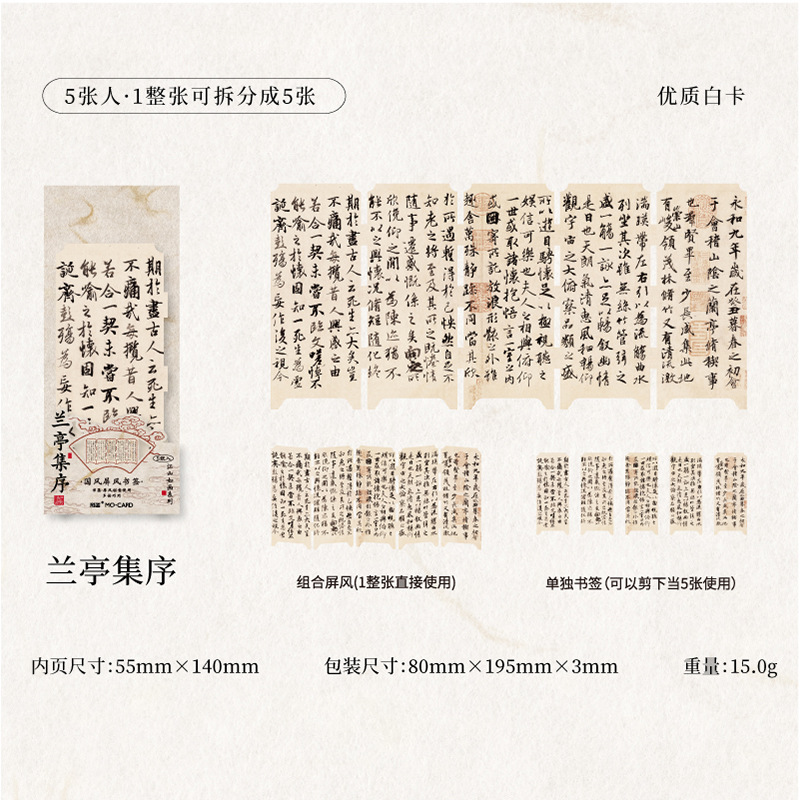 5张人·1整张可拆分成5张
优质白卡
永和九年歲在癸丑暮春之初會
于會稽山陰之蘭亭脩稧事
也羣賢畢至少長咸集此地
有崇山
峻領茂林脩竹又有清流激
湍暎帶左右引以為流觴曲水
列坐其次雖無絲竹管弦之
盛一觴一詠上三足以暢叙幽情
是日也天朗氣清惠風和暢仰
觀宇宙之大俯察品類之盛
所以遊目騁懷足以極視聽之
娛信可樂也夫人之相與俯仰
一世或取諸懷抱悟言一室之內
或因寄所託放浪形骸之外雖
趣舍萬殊靜躁不同當其欣
於所遇蹔得於己怏然自足不
知老之將至及其所之既惓情
隨事遷感慨係之矣向之所
欣俛仰之閒以為陳迹猶不
能不以之興懷況脩短隨化終
期於盡古人云死生亦大矣豈
不痛哉每攬昔人興感之由
若合一契未嘗不臨文嗟悼不
能喻之於懷固知一死生為虛
誕齊彭殤為妄作後之視今
期於盡古人云死生亦
不痛哉每攬昔人興
若合一契未嘗不臨
能喻之於懷固知一
誕齊彭殤為妄作
兰亭集序
江山如画系列
·国风屏风书签·
MO·CARD
兰亭集序
组合屏风(1整张直接使用)
单独书签(可以剪下当5张使用)
内页尺寸:55mm×140mm
包装尺寸:80mm×195mm×3mm
重量:15.0g